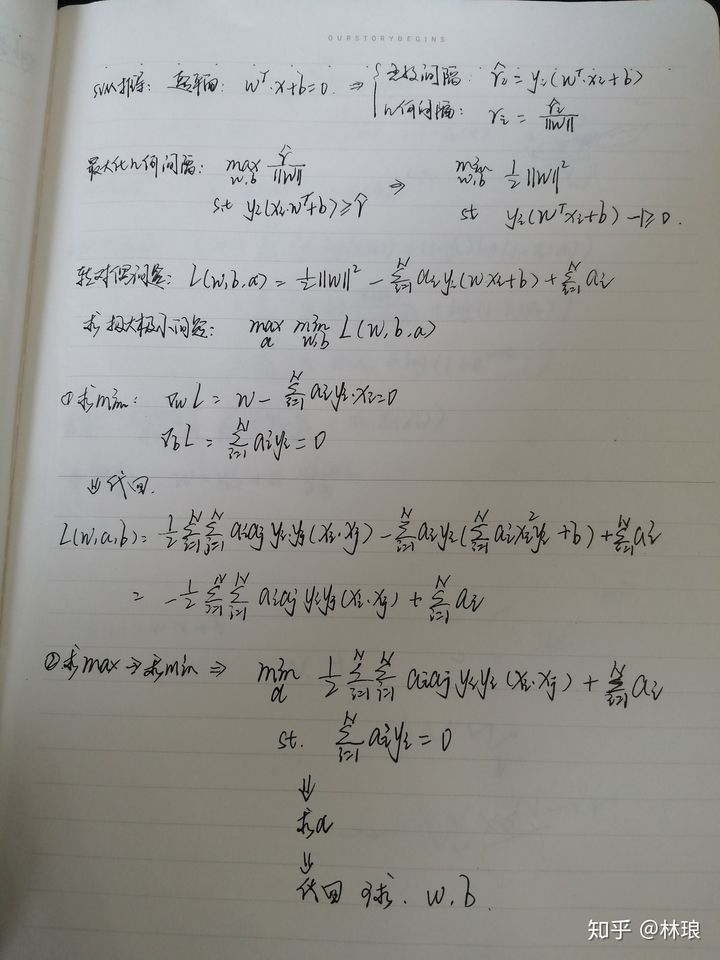 OURSTORYBEGINS
SVM推导: 超平面: w^T·x+b=0 ⇒ { 函数间隔: γ̂i = yi(w^T·xi+b)
几何间隔: γi = γ̂i/||w||
最大化几何间隔: max_{w,b} γ̂/||w|| ⇒ min_{w,b} 1/2||w||²
s.t yi(xi·w^T+b)≥γ̂ st yi(w^T xi+b)-1≥0.
转对偶问题: L(w,b,a) = 1/2||w||² - Σ_{i=1}^N ai yi(w xi+b) + Σ_{i=1}^N ai
求极大极小问题: max_a min_{w,b} L(w,b,a)
① 求min: ∇w L = w - Σ_{i=1}^N ai yi·xi=0
∇b L = Σ_{i=1}^N ai yi = 0
⇓ 代回.
L(w,a,b) = 1/2 Σ_{i=1}^N Σ_{j=1}^N ai aj yi yj (xi·xj) - Σ_{i=1}^N ai yi (Σ_{i=1}^N ai xi² yi + b) + Σ_{i=1}^N ai
= -1/2 Σ_{i=1}^N Σ_{i=1}^N ai aj yi yj (xi·xj) + Σ_{i=1}^N ai
② 求max→求min ⇒ min_a 1/2 Σ_{i=1}^N Σ_{i=1}^N ai aj yi yi (xi·xj) + Σ_{i=1}^N ai
st. Σ_{i=1}^N ai yi = 0
⇓
求a
⇓
代回 求. w,b.
知乎 @林琅